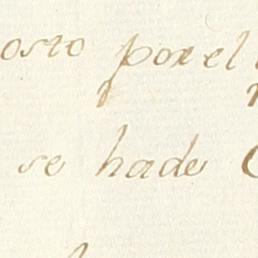 osto por el
se hade